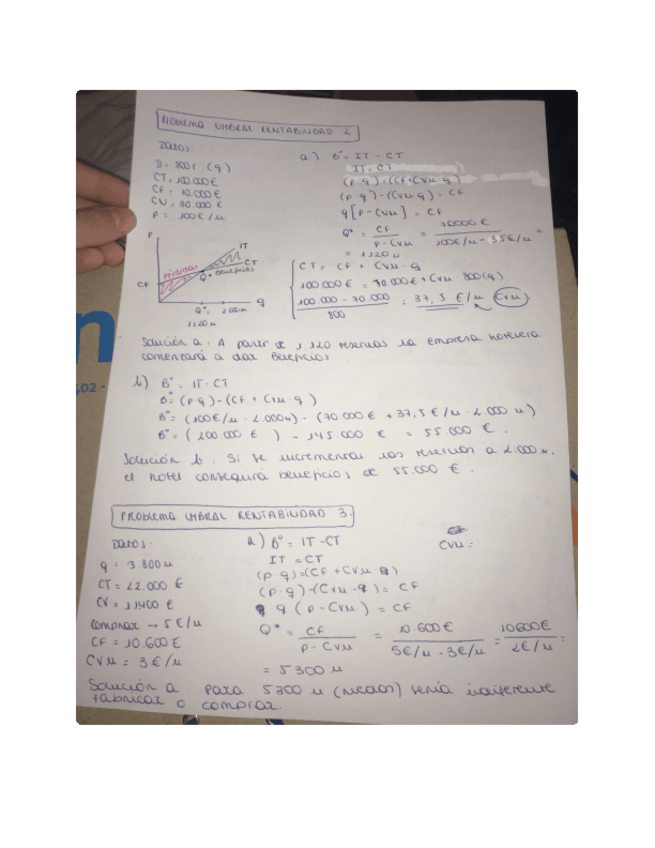 PROBLEMA UMBRAL RENTABILIDAD 2.
DATOS:
D = 800 r (q)
CT = 100.000€
CF = 70.000€
CV = 30.000€
P = 100€/u
a) Bº = IT - CT
IT = CT
(p·q) = (CF + CVu·q)
(p·q) - (CVu·q) = CF
q[P - CVu] = CF
Q* = CF / P - CVu = 70000€ / 100€/u - 37,5€/u =
= 1120 u
P
IT
CT
pérdidas
beneficios
CF
Q*
Q*
2000u
q
1120u
CT = CF + CVu · q
100.000€ = 70.000€ + CVu · 800(q)
100.000 - 70.000 / 800 = 37,5 €/u CVu
Solución a: A partir de 1.120 reservas la empresa hotelera
comenzará a dar beneficios
b) Bº = IT - CT
Bº = (p·q) - (CF + CVu·q)
Bº = (100€/u · 2.000u) - (70 000 € + 37,5 €/u · 2.000 u)
Bº = (200.000 €) - 145.000 € = 55.000 €.
Solución b: Si se incrementan las reservas a 2.000 u,
el hotel conseguirá beneficios de 55.000 €.
PROBLEMA UMBRAL RENTABILIDAD 3.
DATOS:
q = 3.800 u
CT = 22.000 €
CV = 11400 €
comprar → 5€/u
CF = 10.600€
CVu = 3€/u
a) Bº = IT - CT
CVu =
IT = CT
(p·q) = (CF + CVu·q)
(p·q) - (CVu·q) = CF
q (p - CVu) = CF
Q* = CF / P - CVu = 10.600€ / 5€/u - 3€/u = 10600€ / 2€/u =
= 5300 u
Solución a Para 5300 u sería indiferente
fabricar o comprar.
502 -